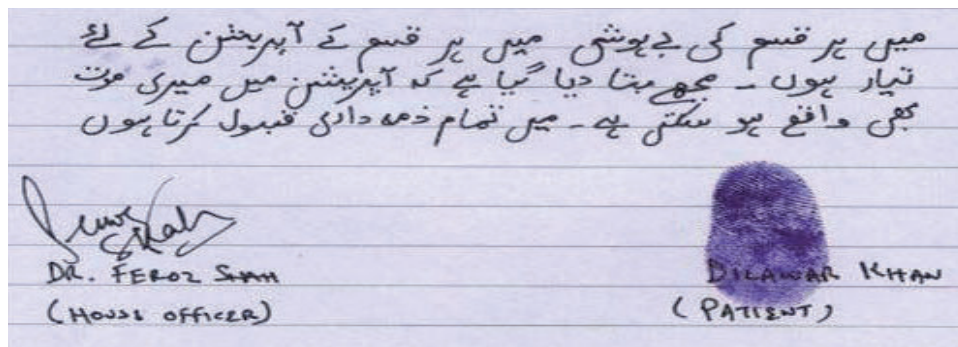 میں ہر قسم کی بے ہوشی میں ہر قسم کے آپریشن کے لئے
تیار ہوں ۔ مجھے بتا دیا گیا ہے کہ آپریشن میں میری موت
بھی واقع ہو سکتی ہے ۔ میں تمام ذمہ داری قبول کرتا ہوں
Feroz Shah
DR. FEROZ SHAH
DILAWAR KHAN
(HOUSE OFFICER)
(PATIENT)